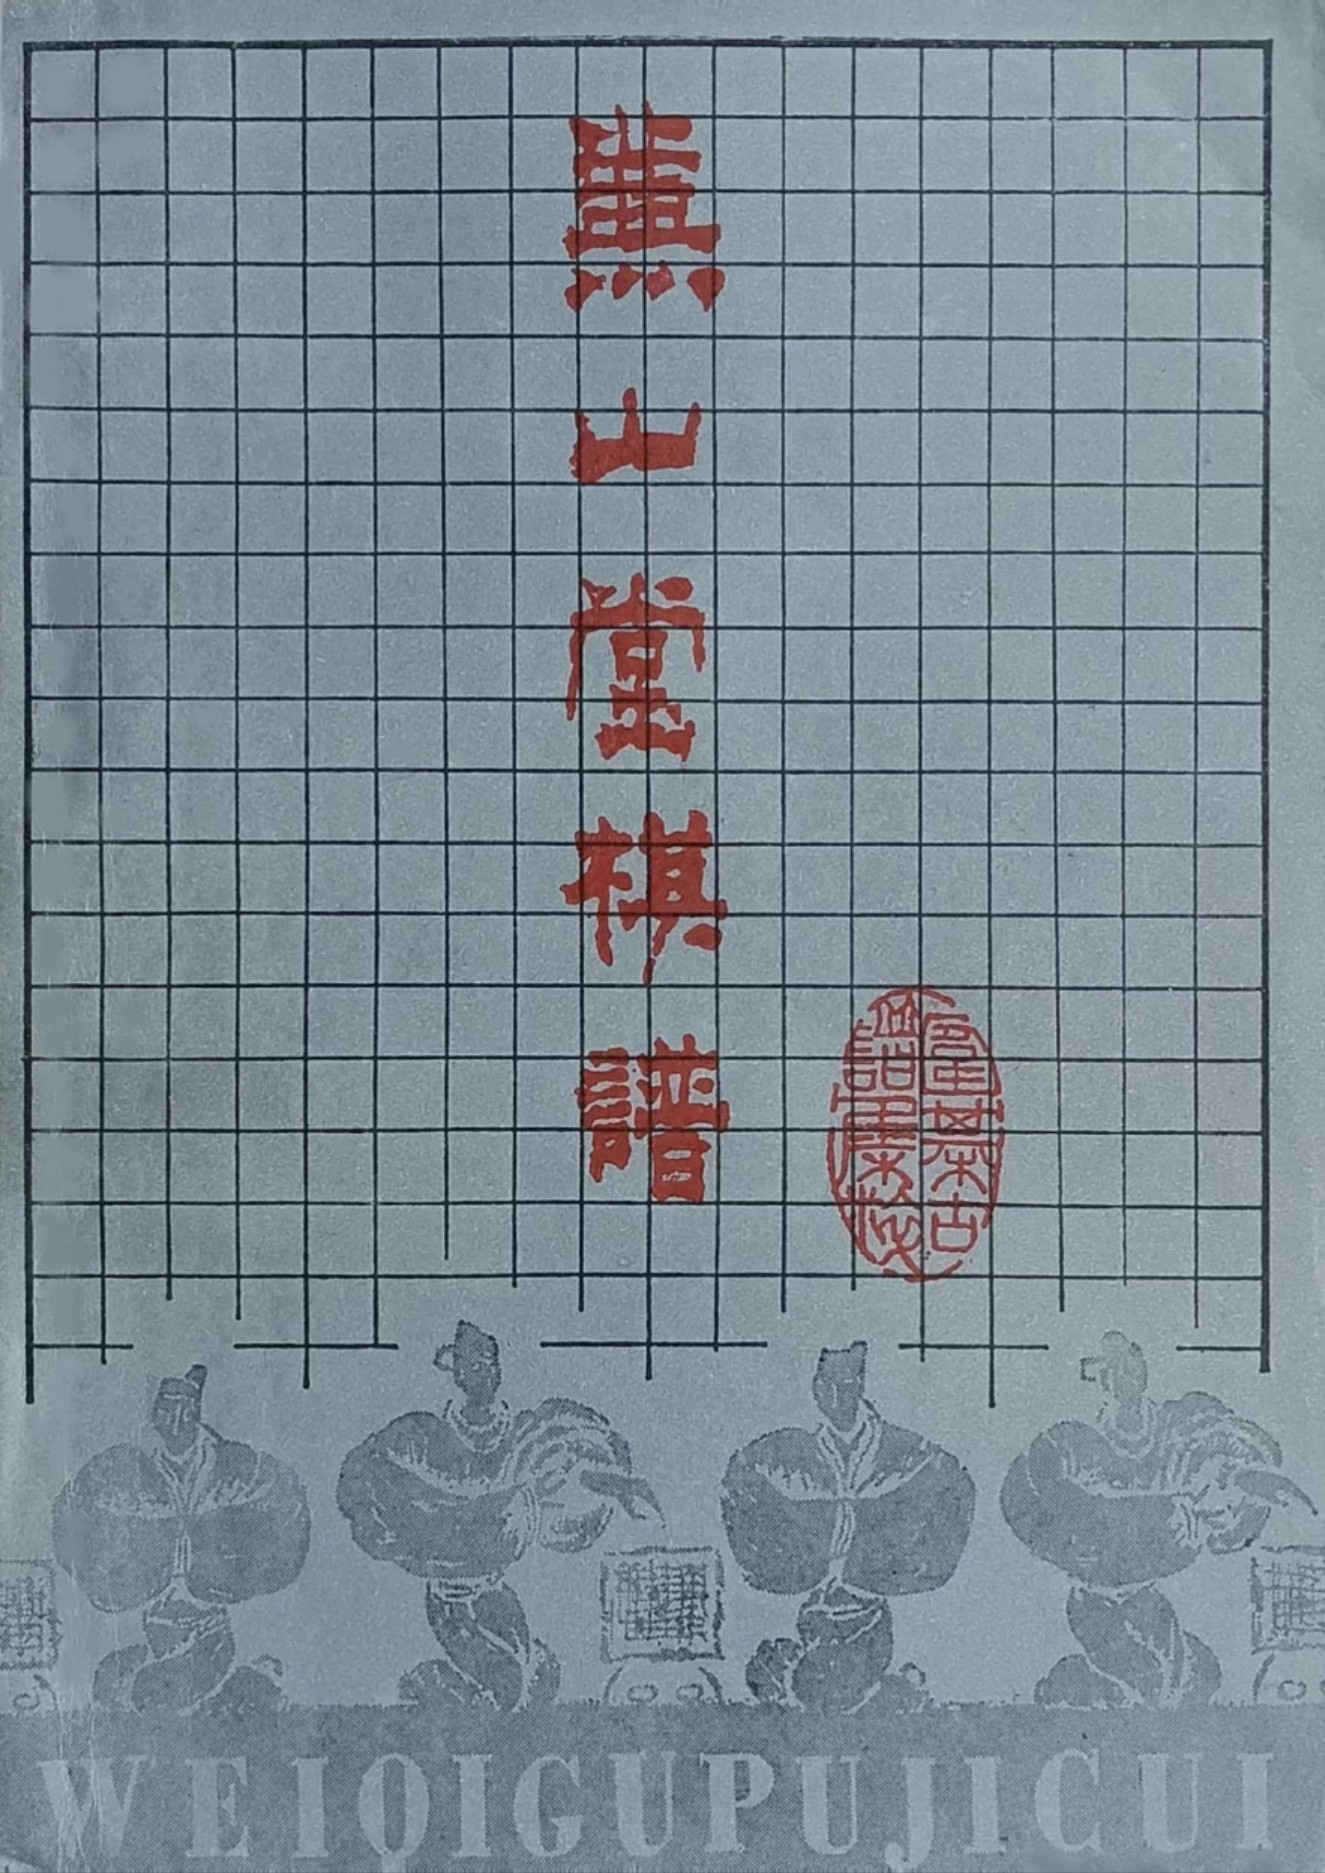 兼山堂棋譜
圍棊古
譜集粹
WEIQIGUPUJICUI